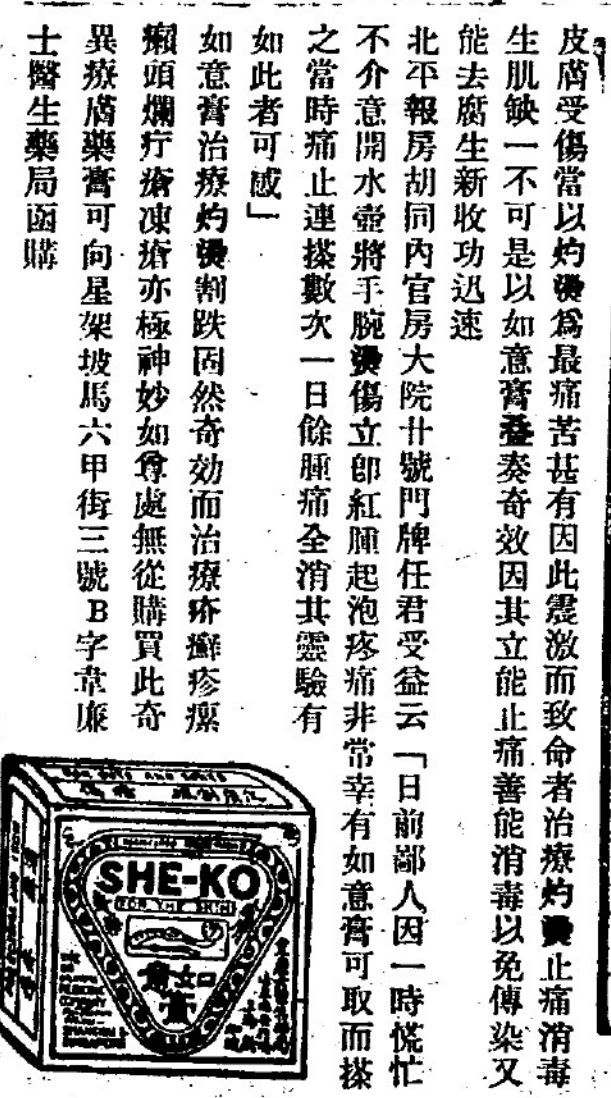 皮膚受傷當以灼燙爲最痛苦甚有因此震激而致命者治療灼燙止痛消毒
生肌缺一不可是以如意膏叠奏奇效因其立能止痛善能消毒以免傳染又
能去腐生新收功迅速
北平報房胡同內官房大院廿號門牌任君受益云「日前鄙人因一時慌忙
不介意開水壺將手腕燙傷立卽紅腫起泡疼痛非常幸有如意膏可取而搽
之當時痛止連搽數次一日餘腫痛全消其靈驗有
如此者可感」
如意膏治療灼燙割跌固然奇効而治療疥癬疹瘰
癩頭爛疔瘡凍瘡亦極神妙如尊處無從購買此奇
異療膚藥膏可向星架坡馬六甲街三號B字韋廉
士醫生藥局函購
SHE-KO
FOR THE SKIN
如意膏